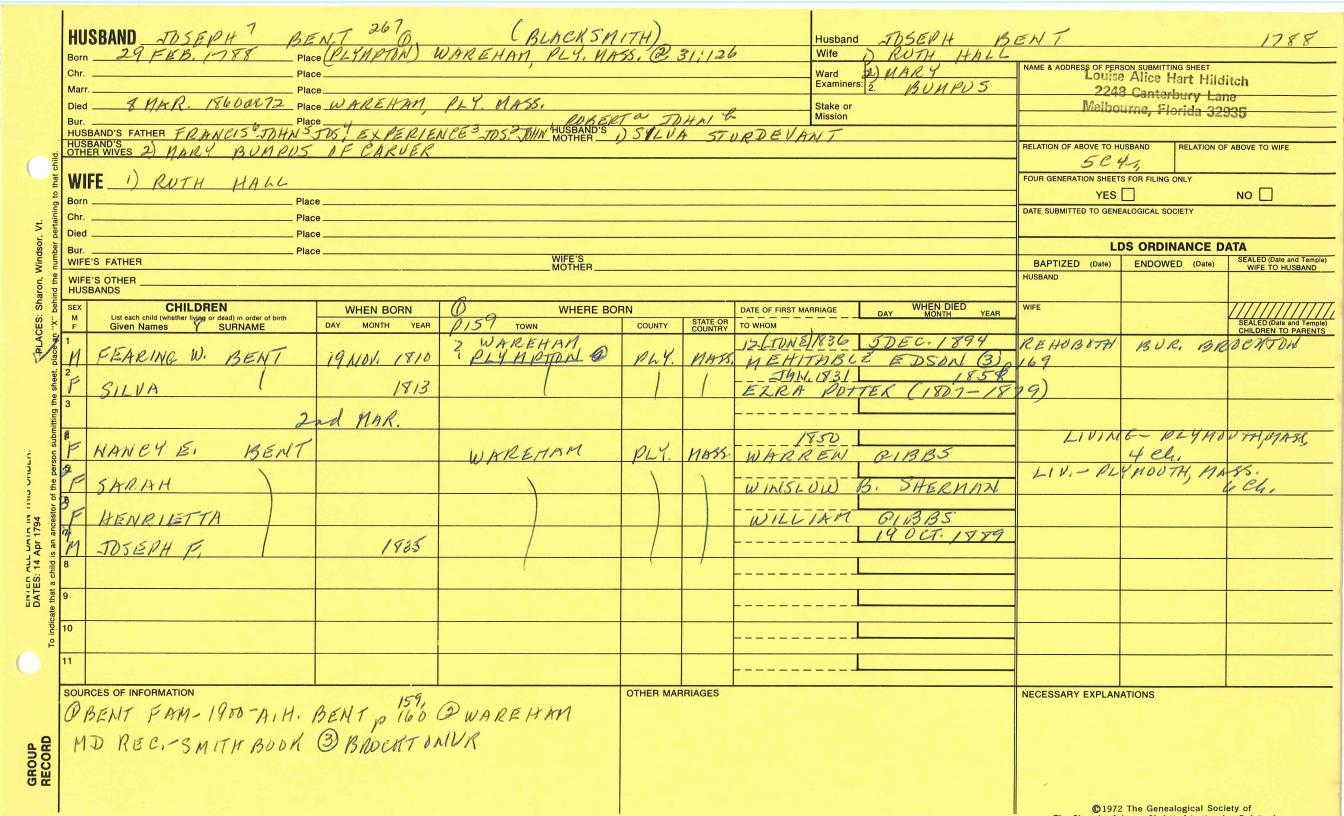 HUSBAND JOSEPH 7 BENT 267 ① (BLACKSMITH)
Born 29 FEB. 1788 Place (PLYMPTON) WAREHAM, PLY. MASS. ② 31:126
Chr. Place
Marr. Place
Died 8 MAR. 1860 or 72 Place WAREHAM, PLY. MASS.
Bur. Place ROBERT JOHN
HUSBAND'S FATHER FRANCIS 6 JOHN 5 JOS 4 EXPERIENCE 3 JOS 2 JOHN 1 HUSBAND'S MOTHER 1) SILVA STURDEVANT
HUSBAND'S OTHER WIVES 2) MARY BUMPUS OF CARVER
Husband JOSEPH BENT 1788
Wife 1) RUTH HALL
Ward 2) MARY
Examiners: 2. BUMPUS
Stake or Mission
NAME & ADDRESS OF PERSON SUBMITTING SHEET
Louise Alice Hart Hilditch
2248 Canterbury Lane
Melbourne, Florida 32935
RELATION OF ABOVE TO HUSBAND RELATION OF ABOVE TO WIFE
5C4r
FOUR GENERATION SHEETS FOR FILING ONLY
YES NO
DATE SUBMITTED TO GENEALOGICAL SOCIETY
WIFE 1) RUTH HALL
Born Place
Chr. Place
Died Place
Bur. Place
WIFE'S FATHER WIFE'S MOTHER
WIFE'S OTHER HUSBANDS
LDS ORDINANCE DATA
BAPTIZED (Date) ENDOWED (Date) SEALED (Date and Temple) WIFE TO HUSBAND
HUSBAND
WIFE
SEALED (Date and Temple) CHILDREN TO PARENTS
SEX M F CHILDREN WHEN BORN ① WHERE BORN DATE OF FIRST MARRIAGE WHEN DIED
List each child (whether living or dead) in order of birth
Given Names SURNAME DAY MONTH YEAR p159 TOWN COUNTY STATE OR COUNTRY TO WHOM DAY MONTH YEAR
1 ? WAREHAM 12 (JUNE) 1836 5 DEC. 1894 REHOBOTH BUR. BROCKTON
M FEARING W. BENT 19 NOV. 1810 PLYMPTON PLY. MASS. MEHITABLE EDSON (3) p169
2 JAN. 1831 1858
F SILVA 1813 EZRA POTTER (1807-1879)
3 2nd MAR.
4 1850 LIVING- PLYMOUTH, MASS,
F NANCY E. BENT WAREHAM PLY. MASS. WARREN GIBBS 4 Ch.
5 LIV.- PLYMOUTH, MASS.
F SARAH WINSLOW B. SHERMAN 6 Ch.
6
F HENRIETTA WILLIAM GIBBS
7 19 OCT. 1889
M JOSEPH F. 1835
8
9
10
11
SOURCES OF INFORMATION
① BENT FAM- 1900-A.H. BENT p 159, 160 ② WAREHAM
MD REC.-SMITH BOOK ③ BROCKTON VR
OTHER MARRIAGES
NECESSARY EXPLANATIONS
©1972 The Genealogical Society of
ENTER ALL DATA IN THIS ORDER:
DATES: 14 Apr 1794
PLACES: Sharon, Windsor, Vt.
To indicate that a child is an ancestor of the person submitting the sheet, place an "X" behind the number pertaining to that child.
GROUP RECORD